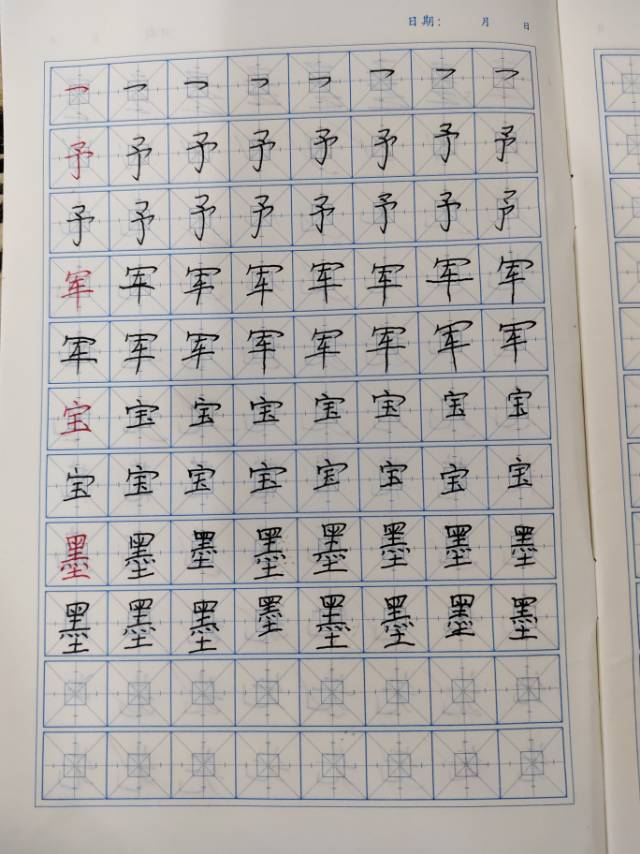 日期： 月 日
乛 乛 乛 乛 乛 乛 乛 乛
予 予 予 予 予 予 予 予
予 予 予 予 予 予 予 予
军 军 军 军 军 军 军 军
军 军 军 军 军 军 军 军
宝 宝 宝 宝 宝 宝 宝 宝
宝 宝 宝 宝 宝 宝 宝 宝
墨 墨 墨 墨 墨 墨 墨 墨
墨 墨 墨 墨 墨 墨 墨 墨